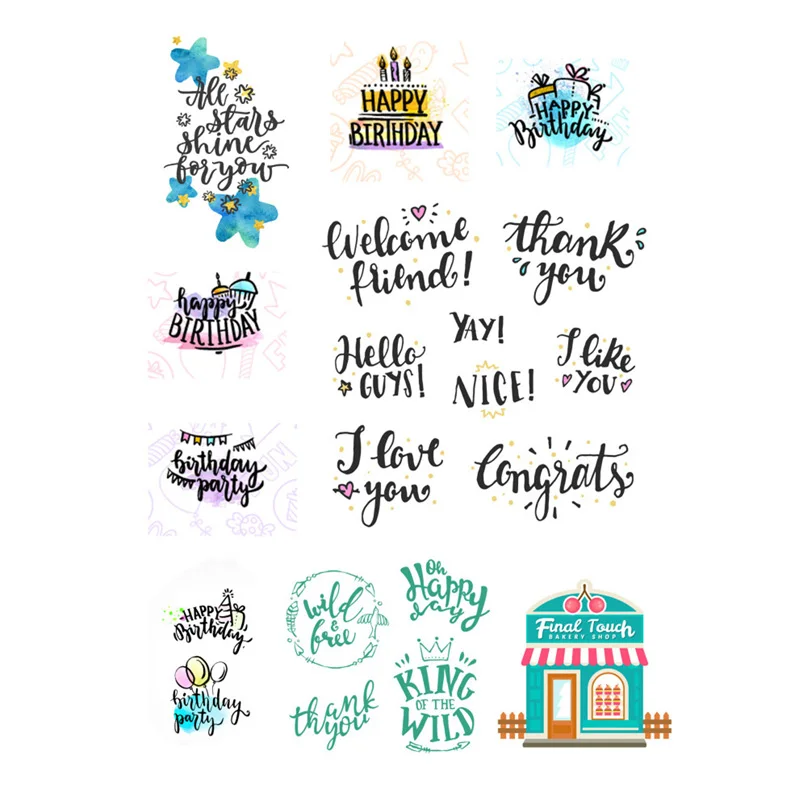 All
stars
shine
for you
HAPPY
BIRTHDAY
HAPPY
Birthday
Welcome
friend!
thank
you
happy
BIRTHDAY
YAY!
Hello
GUYS!
NICE!
I like
YOU
birthday
party
I love
you
Congrats
HAPPY
Birthday
birthday
party
wild
&
free
Oh
Happy
day
thank
you
KING
OF THE
WILD
Final Touch
BAKERY SHOP